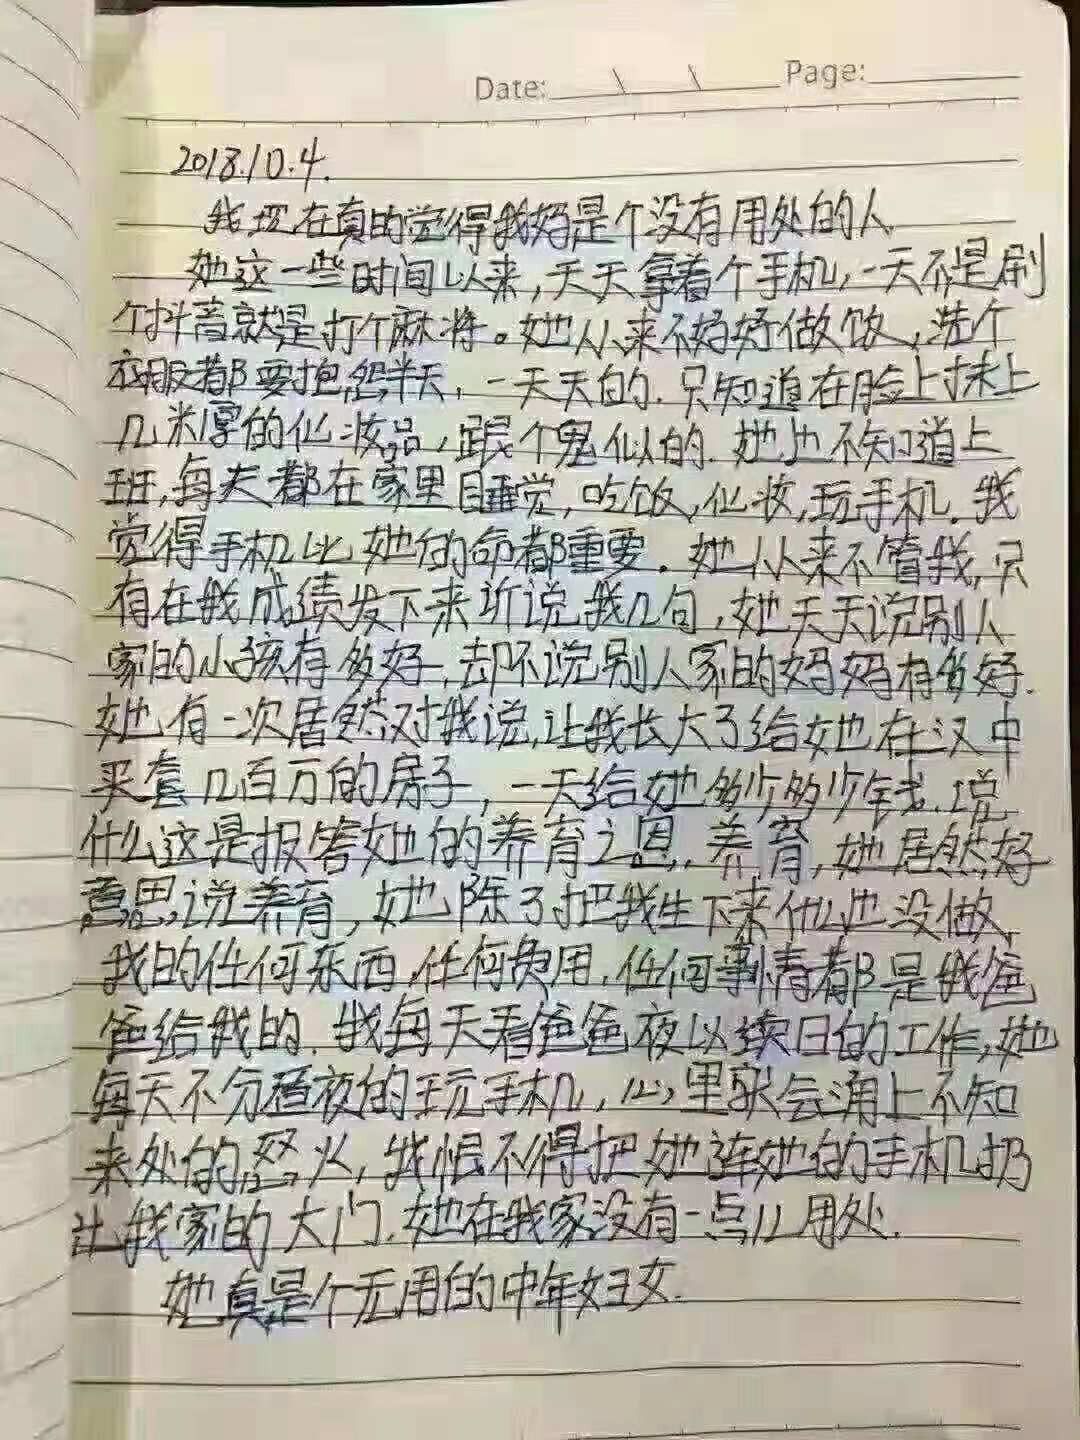 Date: \ \ Page:
2018.10.4.
我现在真的觉得我妈是个没有用处的人.
她这一些时间以来,天天拿着个手机,一天不是刷
个抖音就是打个麻将。她从来不好好做饭,洗个
衣服都要抱怨半天,一天天的.只知道在脸上抹上
几米厚的化妆品,跟个鬼似的.她也不知道上
班,每天都在家里睡觉,吃饭,化妆,玩手机.我
觉得手机比她的命都重要.她从来不管我,只
有在我成绩发下来听说我几句,她天天说别人
家的小孩有多好,却不说别人家的妈妈有多好.
她有一次居然对我说,让我长大了给她在汉中
买套几百万的房子,一天给她多少多少钱.说
什么这是报答她的养育之恩,养育,她居然好
意思说养育,她除了把我生下来什么也没做,
我的任何东西,任何费用,任何事情都是我爸
爸给我的.我每天看爸爸夜以续日的工作,她
每天不分昼夜的玩手机,心里就会涌上不知
来处的怒火,我恨不得把她连她的手机扔
出我家的大门.她在我家没有一点儿用处.
她真是个无用的中年妇女.